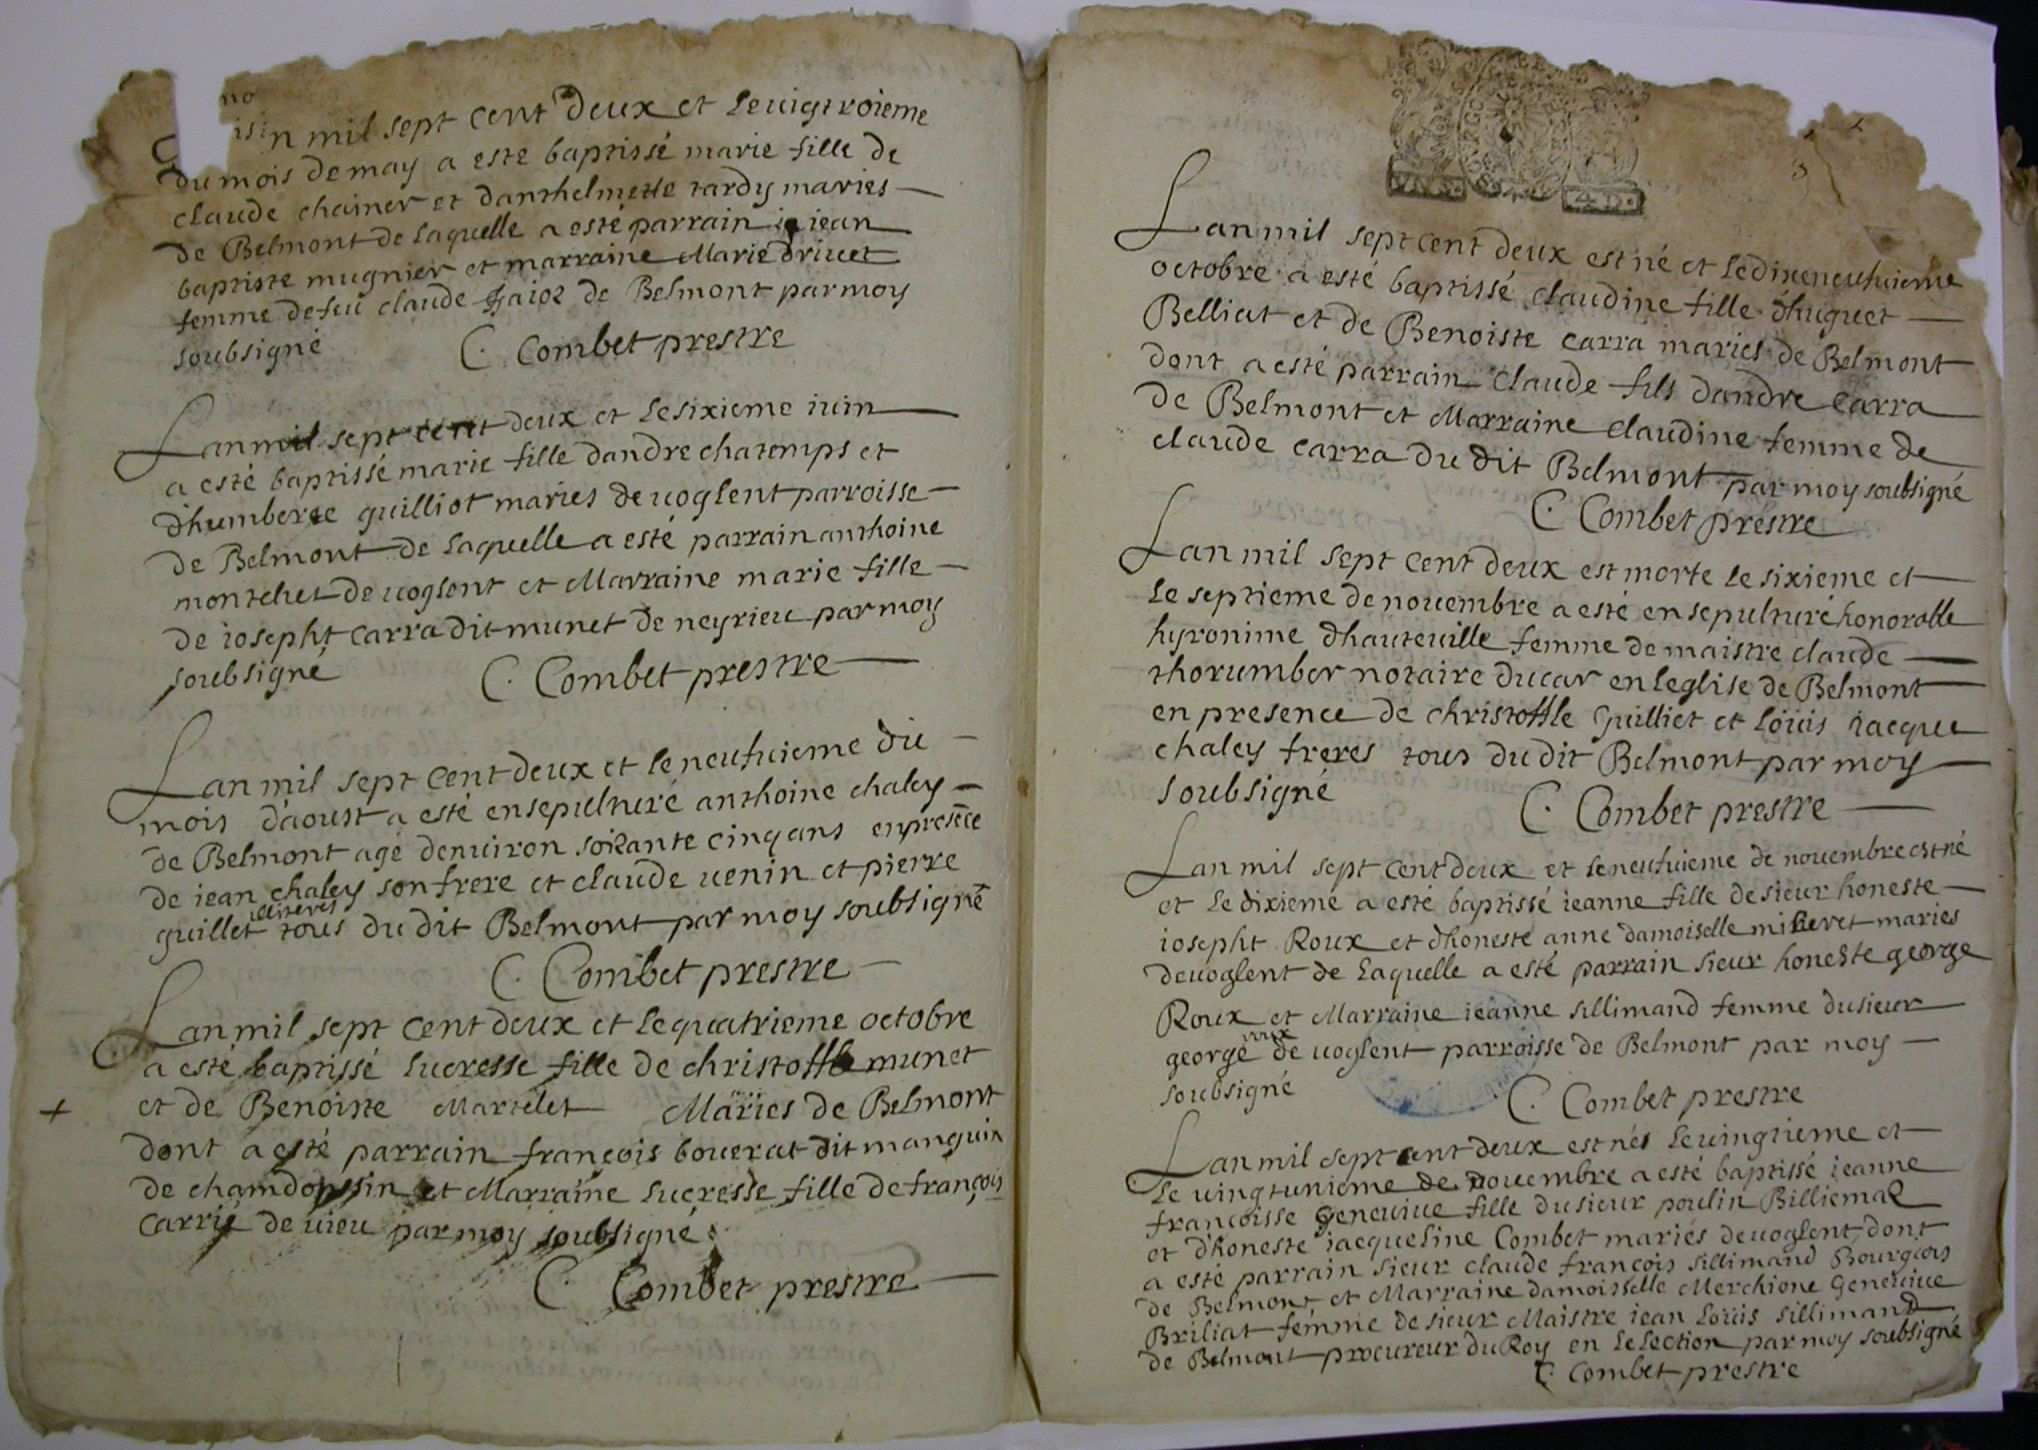 mil sept cent deux et le vigtroieme
du mois de may a este baptissé marie fille de
claude chainer et danthelmette tardy maries
de Belmont de laquelle a esté parrain jean
baptiste mugnier et marraine Marie drivet
femme de feu claude de Belmont par moy
soubsigné C. Combet prestre
Lan mil sept cent deux et le sixieme iuin
a esté baptissé marie fille dandre chatemps et
dhumberte guilliot maries de voglent parroisse
de Belmont de laquelle a esté parrain anthoine
montchet de voglent et Marraine marie fille
de iosepht carra dit munet de neyrieu par moy
soubsigné C. Combet prestre
Lan mil sept cent deux et le neufvieme du
mois d'aoust a esté ensepulturé anthoine chaley
de Belmont agé denviron soixante cinq ans en presēce
de iean chaley son frere et claude venin et pierre
guillet tous du dit Belmont par moy soubsigné
C. Combet prestre
Lan mil sept cent deux et le quatrieme octobre
a esté baptissé lucresse fille de christoffle munet
+ et de Benoiste Martelet Maries de Belmont
dont a esté parrain françois bouerat dit manguin
de chamdossin et Marraine lucresse fille de françois
carrié de vieu par moy soubsigné
C. Combet prestre
4 D.
Lan mil sept cent deux est né et le dixeneufvieme
octobre a esté baptissé claudine fille dhuguet
Belliat et de Benoiste carra maries de Belmont
dont a esté parrain Claude fils dandre carra
de Belmont et Marraine claudine femme de
claude carra du dit Belmont par moy soubsigné
C. Combet prestre
Lan mil sept cent deux est morte le sixieme et
le septieme de novembre a esté ensepulturé honorable
hyronime dhauteville femme de maistre claude
thorumber notaire ducar en leglise de Belmont
en presence de christoffle guilliet et Loüis iacque
chaley freres tous du dit Belmont par moy
soubsigné C. Combet prestre
Lan mil sept cent deux et le neufvieme de novembre est né
et le dixieme a esté baptissé ieanne fille de sieur honeste
iosepht Roux et dhoneste anne damoiselle maries
de voglent de laquelle a esté parrain sieur honeste george
Roux et Marraine ieanne sillimand femme du sieur
george roux de voglent parroisse de Belmont par moy
soubsigné C. Combet prestre
Lan mil sept cent deux est nés le vingtieme et
le vingtunieme de novembre a esté baptissé ieanne
francoisse genevive fille du sieur poulin Billiemaz
et d'honeste iacqueline Combet mariés de voglent dont
a esté parrain sieur claude françois sillimand Bourgiois
de Belmont et Marraine damoisselle Merchione Genevive
Briliat femme de sieur Maistre iean Loüis sillimand
de Belmont procureur du Roy en Lelection par moy soubsigné
C. Combet prestre